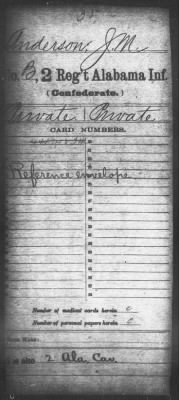 Anderson, J.M.
Co. B, 2 Reg't Alabama Inf.
(Confederate.)
Private | Private
CARD NUMBERS.
Reference envelope
Number of medical cards herein 0
Number of personal papers herein 0
BOOK MARK:
See also 2 Ala Cav